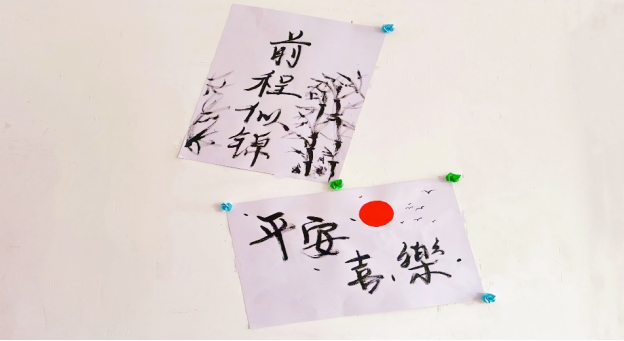 前程似锦
平安
喜樂